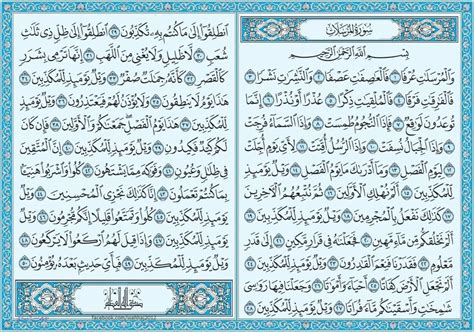 سُورَةُ المُرْسَلَات
بِسْمِ اللَّهِ الرَّحْمَٰنِ الرَّحِيمِ
وَالْمُرْسَلَٰتِ عُرْفًا ١ فَالْعَٰصِفَٰتِ عَصْفًا ٢ وَالنَّٰشِرَٰتِ نَشْرًا ٣
فَالْفَٰرِقَٰتِ فَرْقًا ٤ فَالْمُلْقِيَٰتِ ذِكْرًا ٥ عُذْرًا أَوْ نُذْرًا ٦ إِنَّمَا
تُوعَدُونَ لَوَٰقِعٌ ٧ فَإِذَا النُّجُومُ طُمِسَتْ ٨ وَإِذَا السَّمَآءُ فُرِجَتْ
٩ وَإِذَا الْجِبَالُ نُسِفَتْ ١٠ وَإِذَا الرُّسُلُ أُقِّتَتْ ١١ لِأَيِّ يَوْمٍ أُجِّلَتْ
١٢ لِيَوْمِ الْفَصْلِ ١٣ وَمَآ أَدْرَىٰكَ مَا يَوْمُ الْفَصْلِ ١٤ وَيْلٌ يَوْمَئِذٍ
لِّلْمُكَذِّبِينَ ١٥ أَلَمْ نُهْلِكِ الْأَوَّلِينَ ١٦ ثُمَّ نُتْبِعُهُمُ الْءَاخِرِينَ
١٧ كَذَٰلِكَ نَفْعَلُ بِالْمُجْرِمِينَ ١٨ وَيْلٌ يَوْمَئِذٍ لِّلْمُكَذِّبِينَ ١٩
أَلَمْ نَخْلُقكُّم مِّن مَّآءٍ مَّهِينٍ ٢٠ فَجَعَلْنَٰهُ فِى قَرَارٍ مَّكِينٍ ٢١ إِلَىٰ قَدَرٍ
مَّعْلُومٍ ٢٢ فَقَدَرْنَا فَنِعْمَ الْقَٰدِرُونَ ٢٣ وَيْلٌ يَوْمَئِذٍ لِّلْمُكَذِّبِينَ
٢٤ أَلَمْ نَجْعَلِ الْأَرْضَ كِفَاتًا ٢٥ أَحْيَآءً وَأَمْوَٰتًا ٢٦ وَجَعَلْنَا فِيهَا
رَوَٰسِىَ شَٰمِخَٰتٍ وَأَسْقَيْنَٰكُم مَّآءً فُرَاتًا ٢٧ وَيْلٌ يَوْمَئِذٍ لِّلْمُكَذِّبِينَ ٢٨
انطَلِقُوٓا۟ إِلَىٰ مَا كُنتُم بِهِۦ تُكَذِّبُونَ ٢٩ انطَلِقُوٓا۟ إِلَىٰ ظِلٍّ ذِى ثَلَٰثِ
شُعَبٍ ٣٠ لَّا ظَلِيلٍ وَلَا يُغْنِى مِنَ اللَّهَبِ ٣١ إِنَّهَا تَرْمِى بِشَرَرٍ
كَالْقَصْرِ ٣٢ كَأَنَّهُۥ جِمَٰلَتٌ صُفْرٌ ٣٣ وَيْلٌ يَوْمَئِذٍ لِّلْمُكَذِّبِينَ ٣٤
هَٰذَا يَوْمُ لَا يَنطِقُونَ ٣٥ وَلَا يُؤْذَنُ لَهُمْ فَيَعْتَذِرُونَ ٣٦ وَيْلٌ يَوْمَئِذٍ
لِّلْمُكَذِّبِينَ ٣٧ هَٰذَا يَوْمُ الْفَصْلِ جَمَعْنَٰكُمْ وَالْأَوَّلِينَ ٣٨ فَإِن كَانَ
لَكُمْ كَيْدٌ فَكِيدُونِ ٣٩ وَيْلٌ يَوْمَئِذٍ لِّلْمُكَذِّبِينَ ٤٠ إِنَّ الْمُتَّقِينَ
فِى ظِلَٰلٍ وَعُيُونٍ ٤١ وَفَوَٰكِهَ مِمَّا يَشْتَهُونَ ٤٢ كُلُوا۟ وَاشْرَبُوا۟ هَنِيٓـًٔا
بِمَا كُنتُمْ تَعْمَلُونَ ٤٣ إِنَّا كَذَٰلِكَ نَجْزِى الْمُحْسِنِينَ ٤٤ وَيْلٌ يَوْمَئِذٍ
لِّلْمُكَذِّبِينَ ٤٥ كُلُوا۟ وَتَمَتَّعُوا۟ قَلِيلًا إِنَّكُم مُّجْرِمُونَ ٤٦ وَيْلٌ
يَوْمَئِذٍ لِّلْمُكَذِّبِينَ ٤٧ وَإِذَا قِيلَ لَهُمُ ارْكَعُوا۟ لَا يَرْكَعُونَ ٤٨
وَيْلٌ يَوْمَئِذٍ لِّلْمُكَذِّبِينَ ٤٩ فَبِأَىِّ حَدِيثٍۭ بَعْدَهُۥ يُؤْمِنُونَ ٥٠